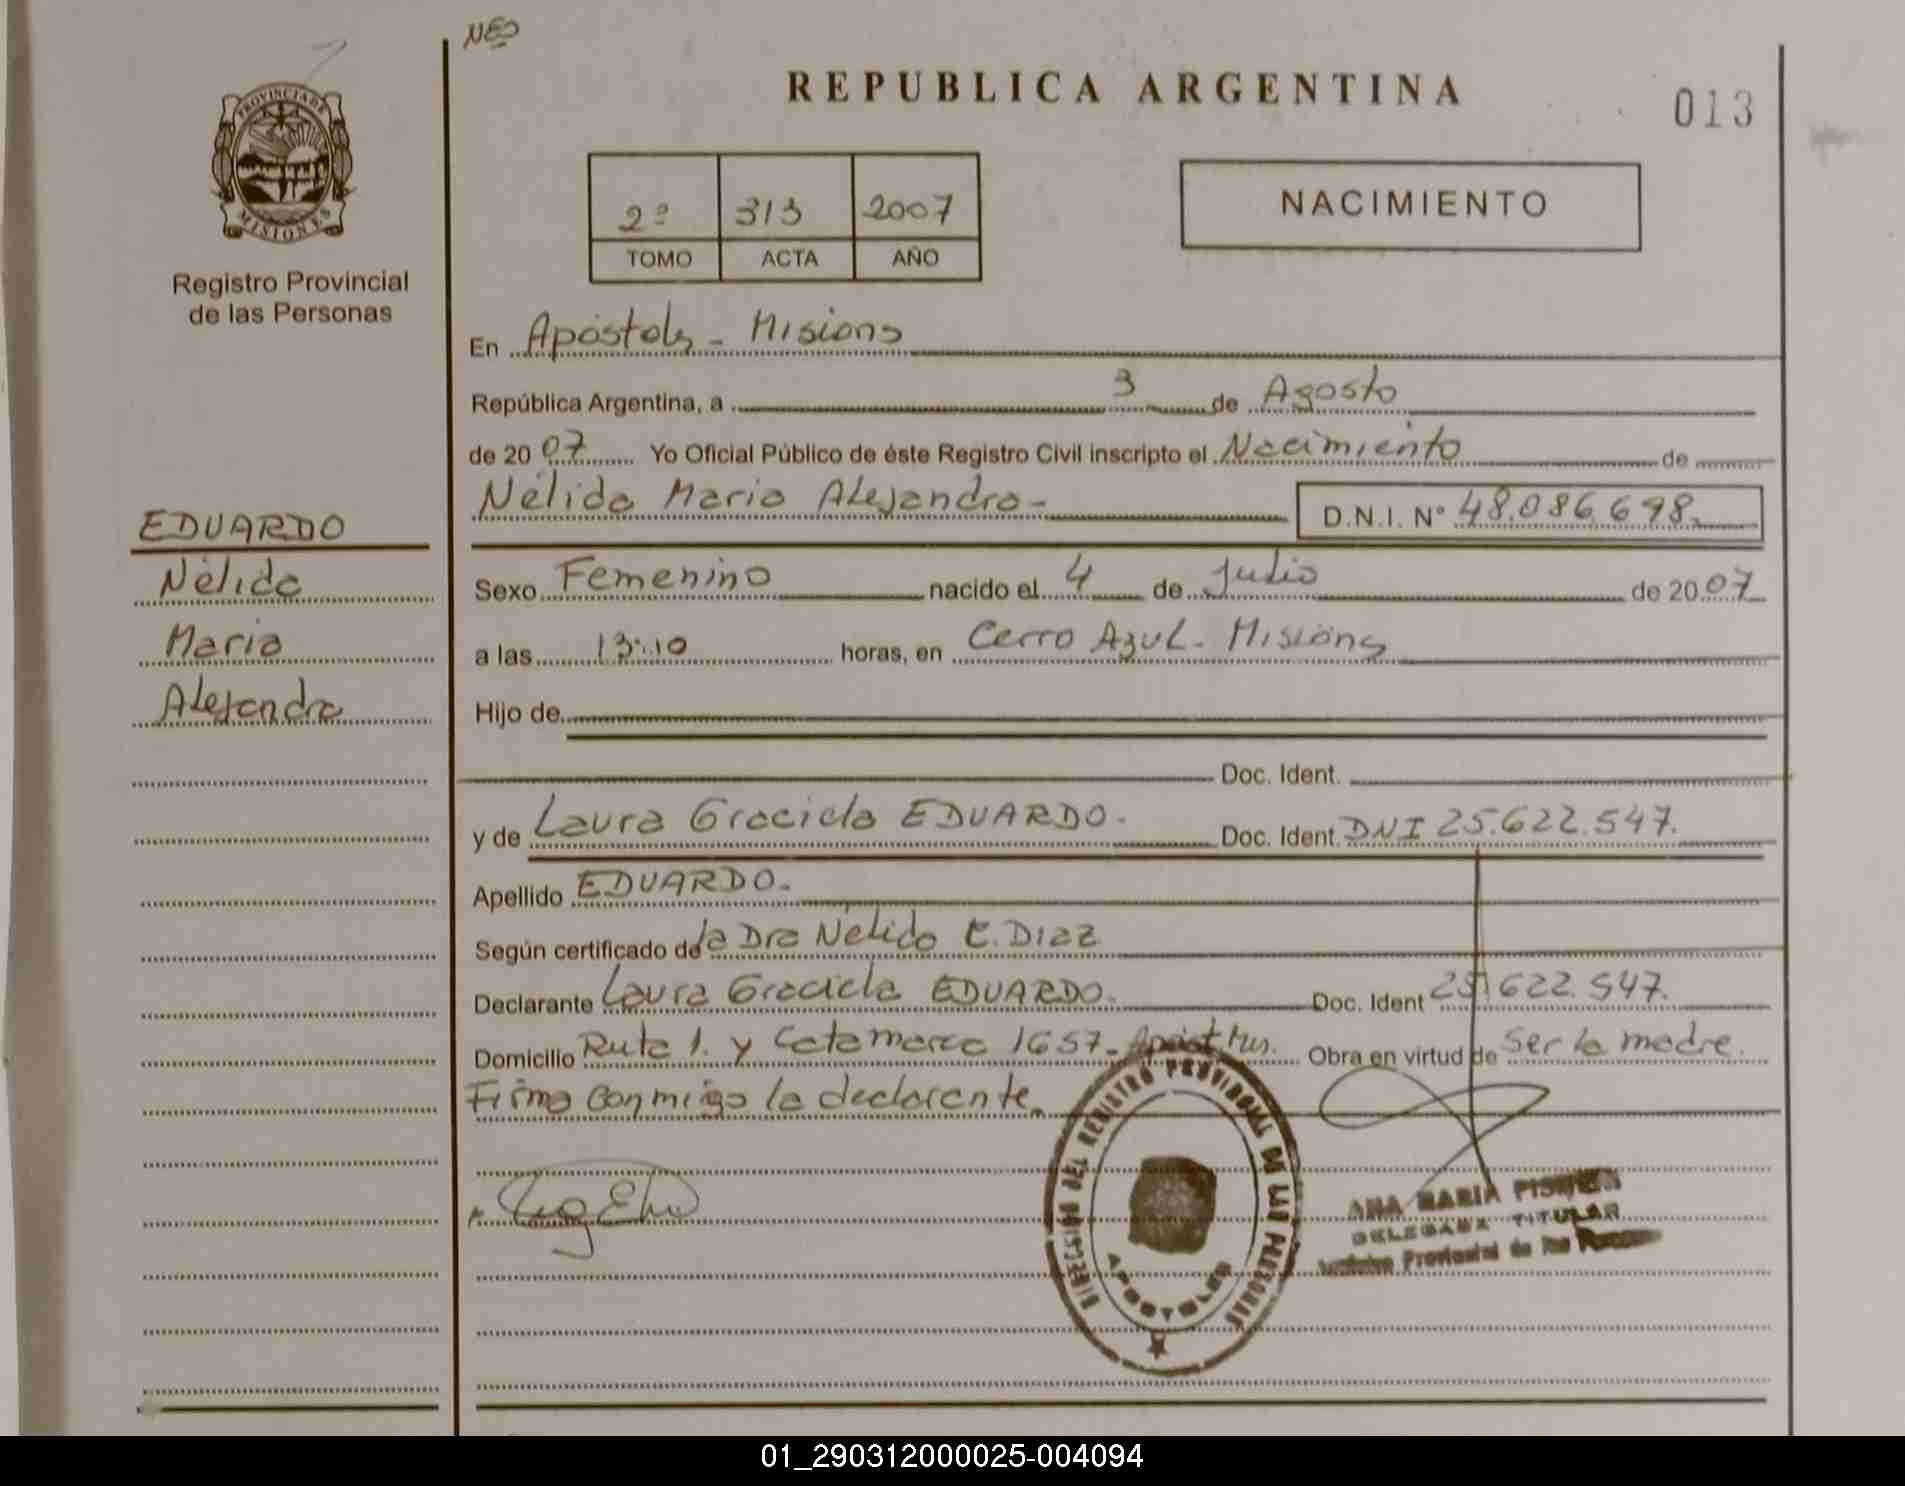 NES
REPUBLICA ARGENTINA
013
PROVINCIA DE
MISIONES
Registro Provincial
de las Personas
2º 313 2007
TOMO ACTA AÑO
NACIMIENTO
En Apóstoles - Misiones
República Argentina, a 3 de Agosto
de 2007 Yo Oficial Público de éste Registro Civil inscripto el Nacimiento de
Nélida Maria Alejandra - D.N.I. Nº 48.086.698.
EDUARDO
Nélida
Maria
Alejandra
Sexo Femenino nacido el 4 de Julio de 2007
a las 13:10 horas, en Cerro Azul - Misiones
Hijo de
Doc. Ident.
y de Laura Graciela EDUARDO. Doc. Ident. DNI 25.622.547.
Apellido EDUARDO.
Según certificado de la Dra Nélida E. Diaz
Declarante Laura Graciela EDUARDO. Doc. Ident 25.622.547.
Domicilio Ruta 1. y Catamarca 1657 - Apóstoles. Obra en virtud de Ser la madre.
Firma conmigo la declarante.
DIRECCION DEL REGISTRO PROVINCIAL DE LAS PERSONAS
APOSTOLES
ANA MARIA
DELEGADA TITULAR
Provincial de las Personas
01_290312000025-004094